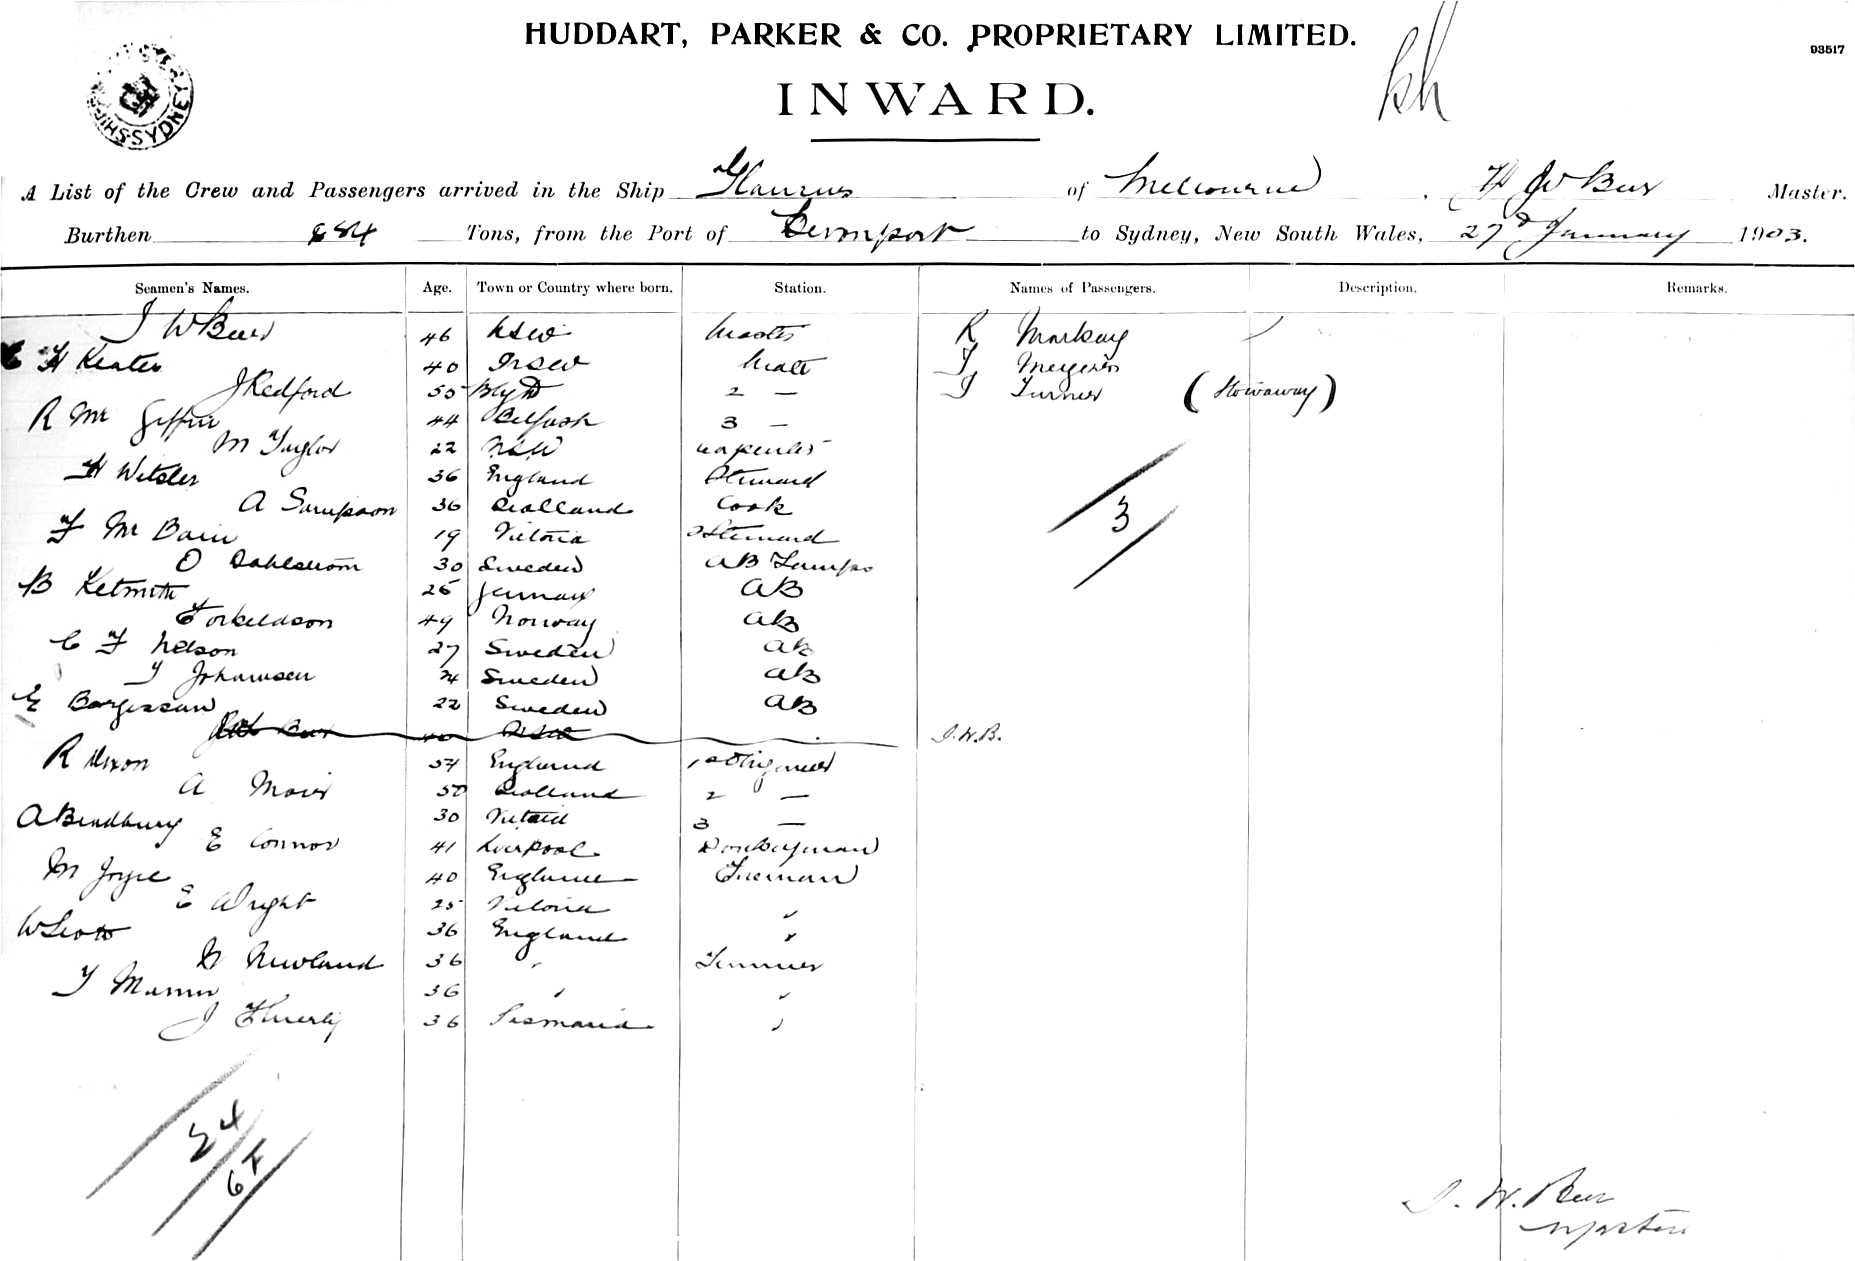 HUDDART, PARKER & CO. PROPRIETARY LIMITED.
93517
INWARD.
SYDNEY
A List of the Crew and Passengers arrived in the Ship Glaucus of Melbourne, J W Beer Master.
Burthen Tons, from the Port of Devonport to Sydney, New South Wales, 27 January 1903.
Seamen's Names. Age. Town or Country where born. Station. Names of Passengers. Description. Remarks.
J W Beer 46 NSW Master R Markay
H Keates 40 NSW Mate T
J Redford 55 Blyth 2 — J Turner (Stowaway)
R Mc Giffin 44 Belfast 3 —
M Taylor 22 NSW Carpenter
H Witsler 36 England Steward
A Sampson 36 Scotland Cook
F Mc Bain 19 Victoria 2 Steward
3
O Dahlstrom 30 Sweden AB Lamps
B Ketmith 25 Germany AB
Torkeldson 49 Norway AB
C F Nelson 27 Sweden AB
T Johannsen 24 Sweden AB
E Borgessan 22 Sweden AB
J.W.B.
R Dixon 54 England 1st Engineer
A Moir 50 Scotland 2 —
A Bradbury 30 Victoria 3 —
E Connor 41 Liverpool Donkeyman
M Joyce 40 England Fireman
E Wright 25 Victoria "
W Scott 36 England "
Newland 36 " Trimmer
T 36 " "
J 36 Tasmania "
24
67
J. W. Beer
Master